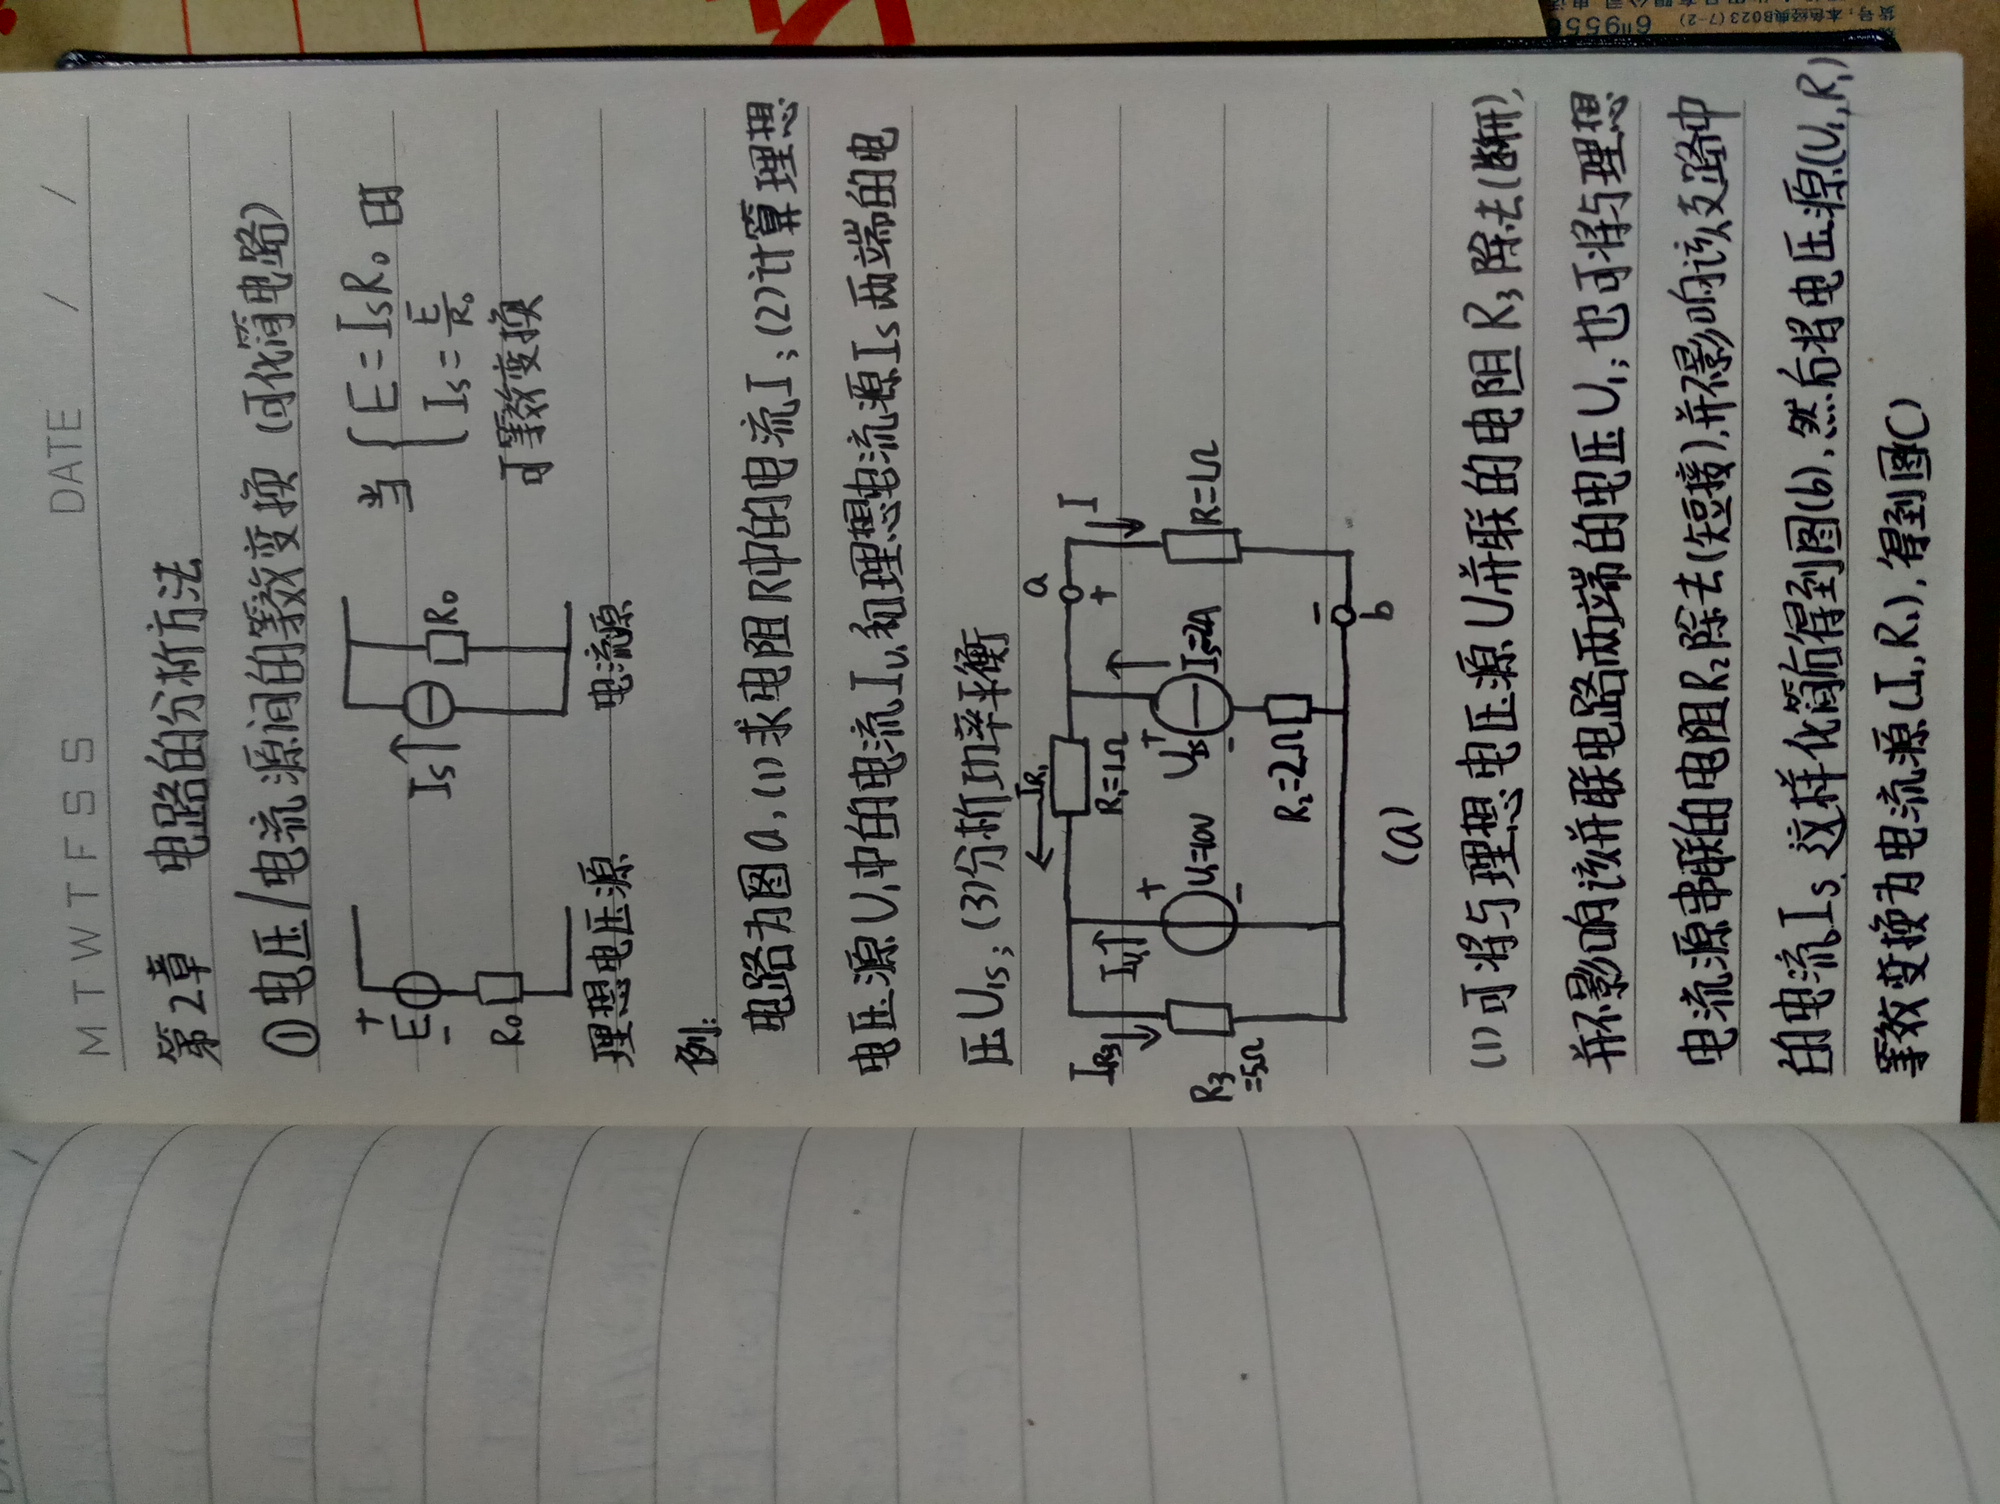 M T W T F S S DATE / /
第2章 电路的分析方法
①电压/电流源间的等效变换（可化简电路）
+
E
-
R₀
Is
R₀
当 { E=IsR₀ 时
Is=E/R₀
可等效变换
理想电压源 电流源
例:
电路为图a,(1)求电阻R中的电流I;(2)计算理想
电压源U₁中的电流Iu₁和理想电流源Is两端的电
压U₁s;(3)分析功率平衡
IR₁ a
IR₃ Iu₁ R₁=1Ω + I
R₃=5Ω + U₁=10V - + U₁s - Is=2A R=1Ω
R₂=2Ω -
b
(a)
(1)可将与理想电压源U并联的电阻R₃除去(断开),
并不影响该并联电路两端的电压U₁;也可将与理想
电流源串联的电阻R₂除去(短接),并不影响该支路中
的电流Is.这样化简后得到图(b),然后将电压源(U₁,R₁)
等效变换为电流源(I₁,R₁),得到图(C)
6"9556
货号:本色经典B023(7-2)